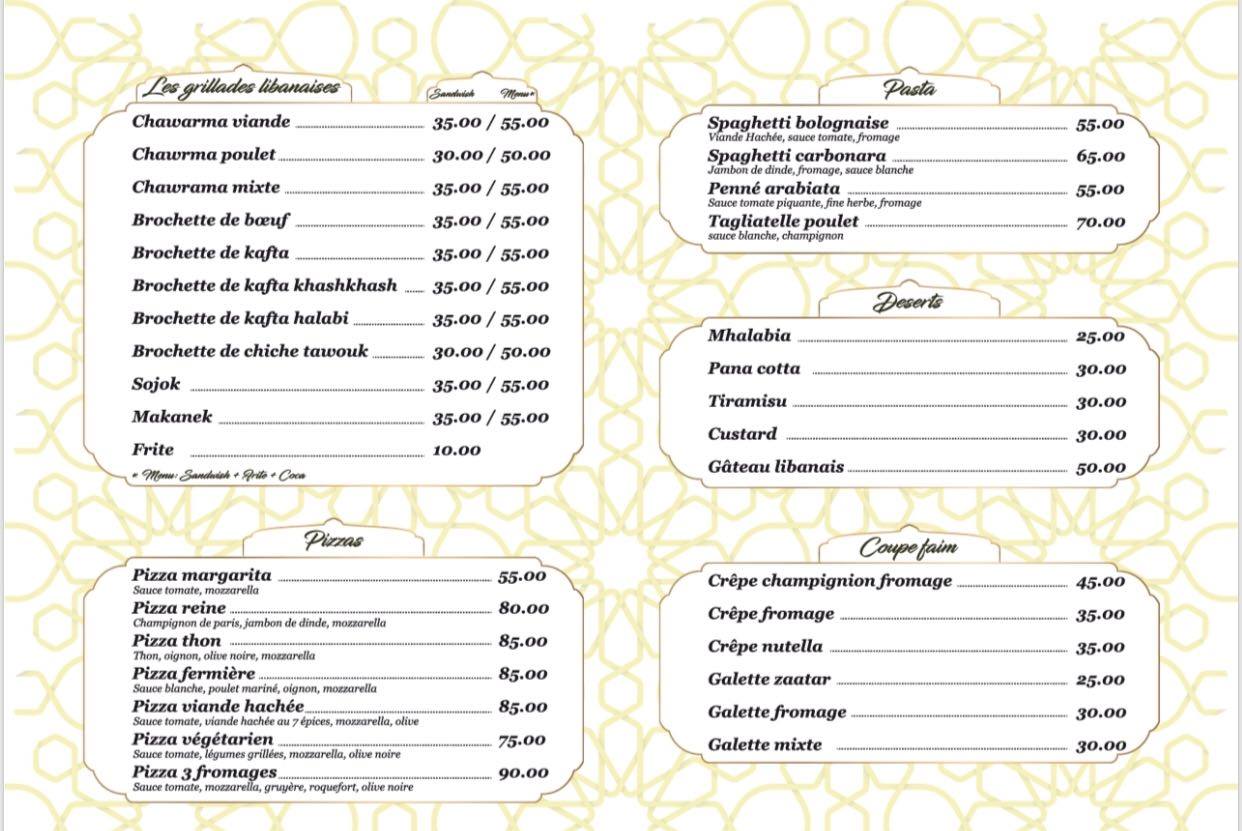 Les grillades libanaises
Sandwish Menu*
Chawarma viande 35.00 / 55.00
Chawrma poulet 30.00 / 50.00
Chawrama mixte 35.00 / 55.00
Brochette de bœuf 35.00 / 55.00
Brochette de kafta 35.00 / 55.00
Brochette de kafta khashkhash 35.00 / 55.00
Brochette de kafta halabi 35.00 / 55.00
Brochette de chiche tawouk 30.00 / 50.00
Sojok 35.00 / 55.00
Makanek 35.00 / 55.00
Frite 10.00
* Menu: Sandwish + Frite + Coca
Pizzas
Pizza margarita 55.00
Sauce tomate, mozzarella
Pizza reine 80.00
Champignon de paris, jambon de dinde, mozzarella
Pizza thon 85.00
Thon, oignon, olive noire, mozzarella
Pizza fermière 85.00
Sauce blanche, poulet mariné, oignon, mozzarella
Pizza viande hachée 85.00
Sauce tomate, viande hachée au 7 épices, mozzarella, olive
Pizza végétarien 75.00
Sauce tomate, légumes grillées, mozzarella, olive noire
Pizza 3 fromages 90.00
Sauce tomate, mozzarella, gruyère, roquefort, olive noire
Pasta
Spaghetti bolognaise 55.00
Viande Hachée, sauce tomate, fromage
Spaghetti carbonara 65.00
Jambon de dinde, fromage, sauce blanche
Penné arabiata 55.00
Sauce tomate piquante, fine herbe, fromage
Tagliatelle poulet 70.00
sauce blanche, champignon
Deserts
Mhalabia 25.00
Pana cotta 30.00
Tiramisu 30.00
Custard 30.00
Gâteau libanais 50.00
Coupe faim
Crêpe champignion fromage 45.00
Crêpe fromage 35.00
Crêpe nutella 35.00
Galette zaatar 25.00
Galette fromage 30.00
Galette mixte 30.00